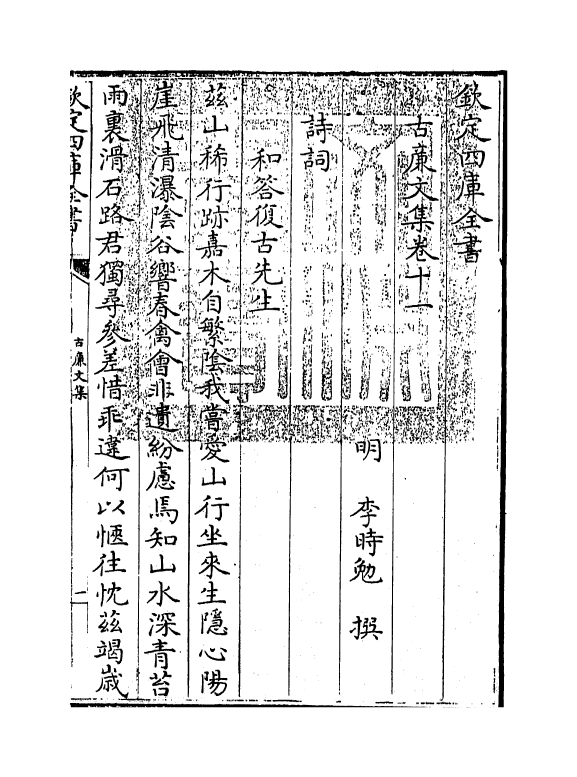 欽定四庫全書
古廉文集卷十一
明 李時勉 撰
詩詞
和答復古先生
茲山稀行跡嘉木自繁陰我嘗愛山行坐來生隱心陽
崖飛清瀑陰谷響春禽會非遺紛慮焉知山水深青苔
雨裏滑石路君獨尋參差惜乖違何以愜往忱茲竭歲
欽定四庫全書
古廉文集
一